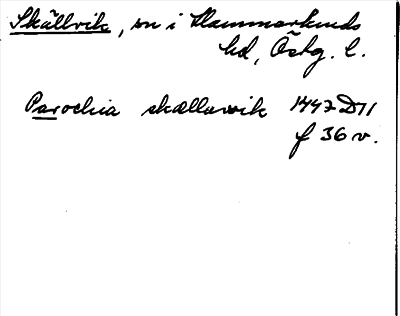 Skällvik, sn i Hammarkinds
hd, Östg. l.
Parochia skællawik 1447 D11
f 36 v.